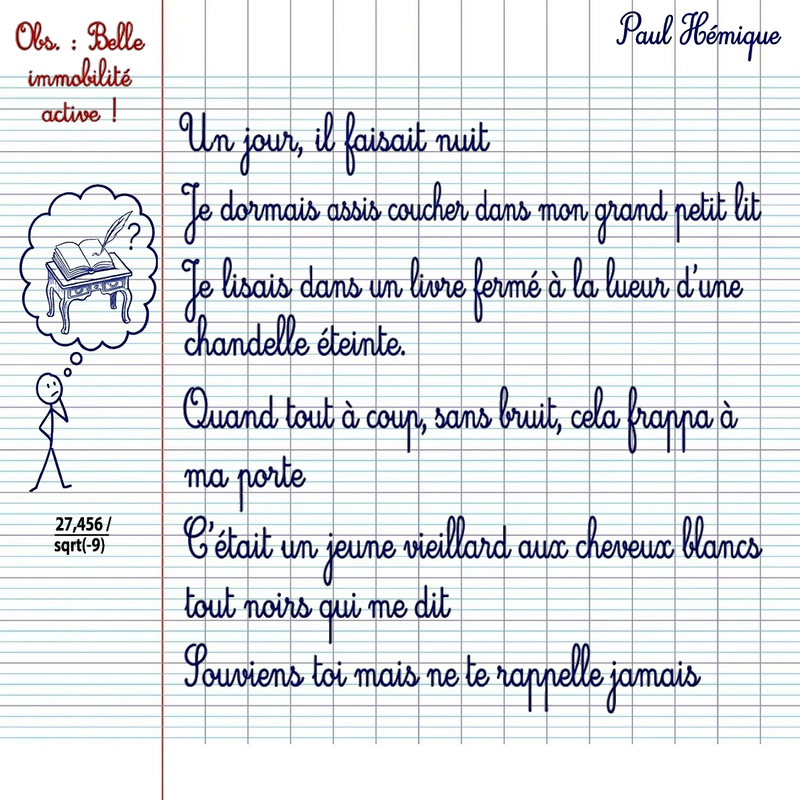 Obs. : Belle
immobilité
active !
Paul Hémique
Un jour, il faisait nuit
Je dormais assis coucher dans mon grand petit lit
Je lisais dans un livre fermé à la lueur d'une
chandelle éteinte.
?
Quand tout à coup, sans bruit, cela frappa à
ma porte
C'était un jeune vieillard aux cheveux blancs
tout noirs qui me dit
Souviens toi mais ne te rappelle jamais
27,456 /
sqrt(-9)